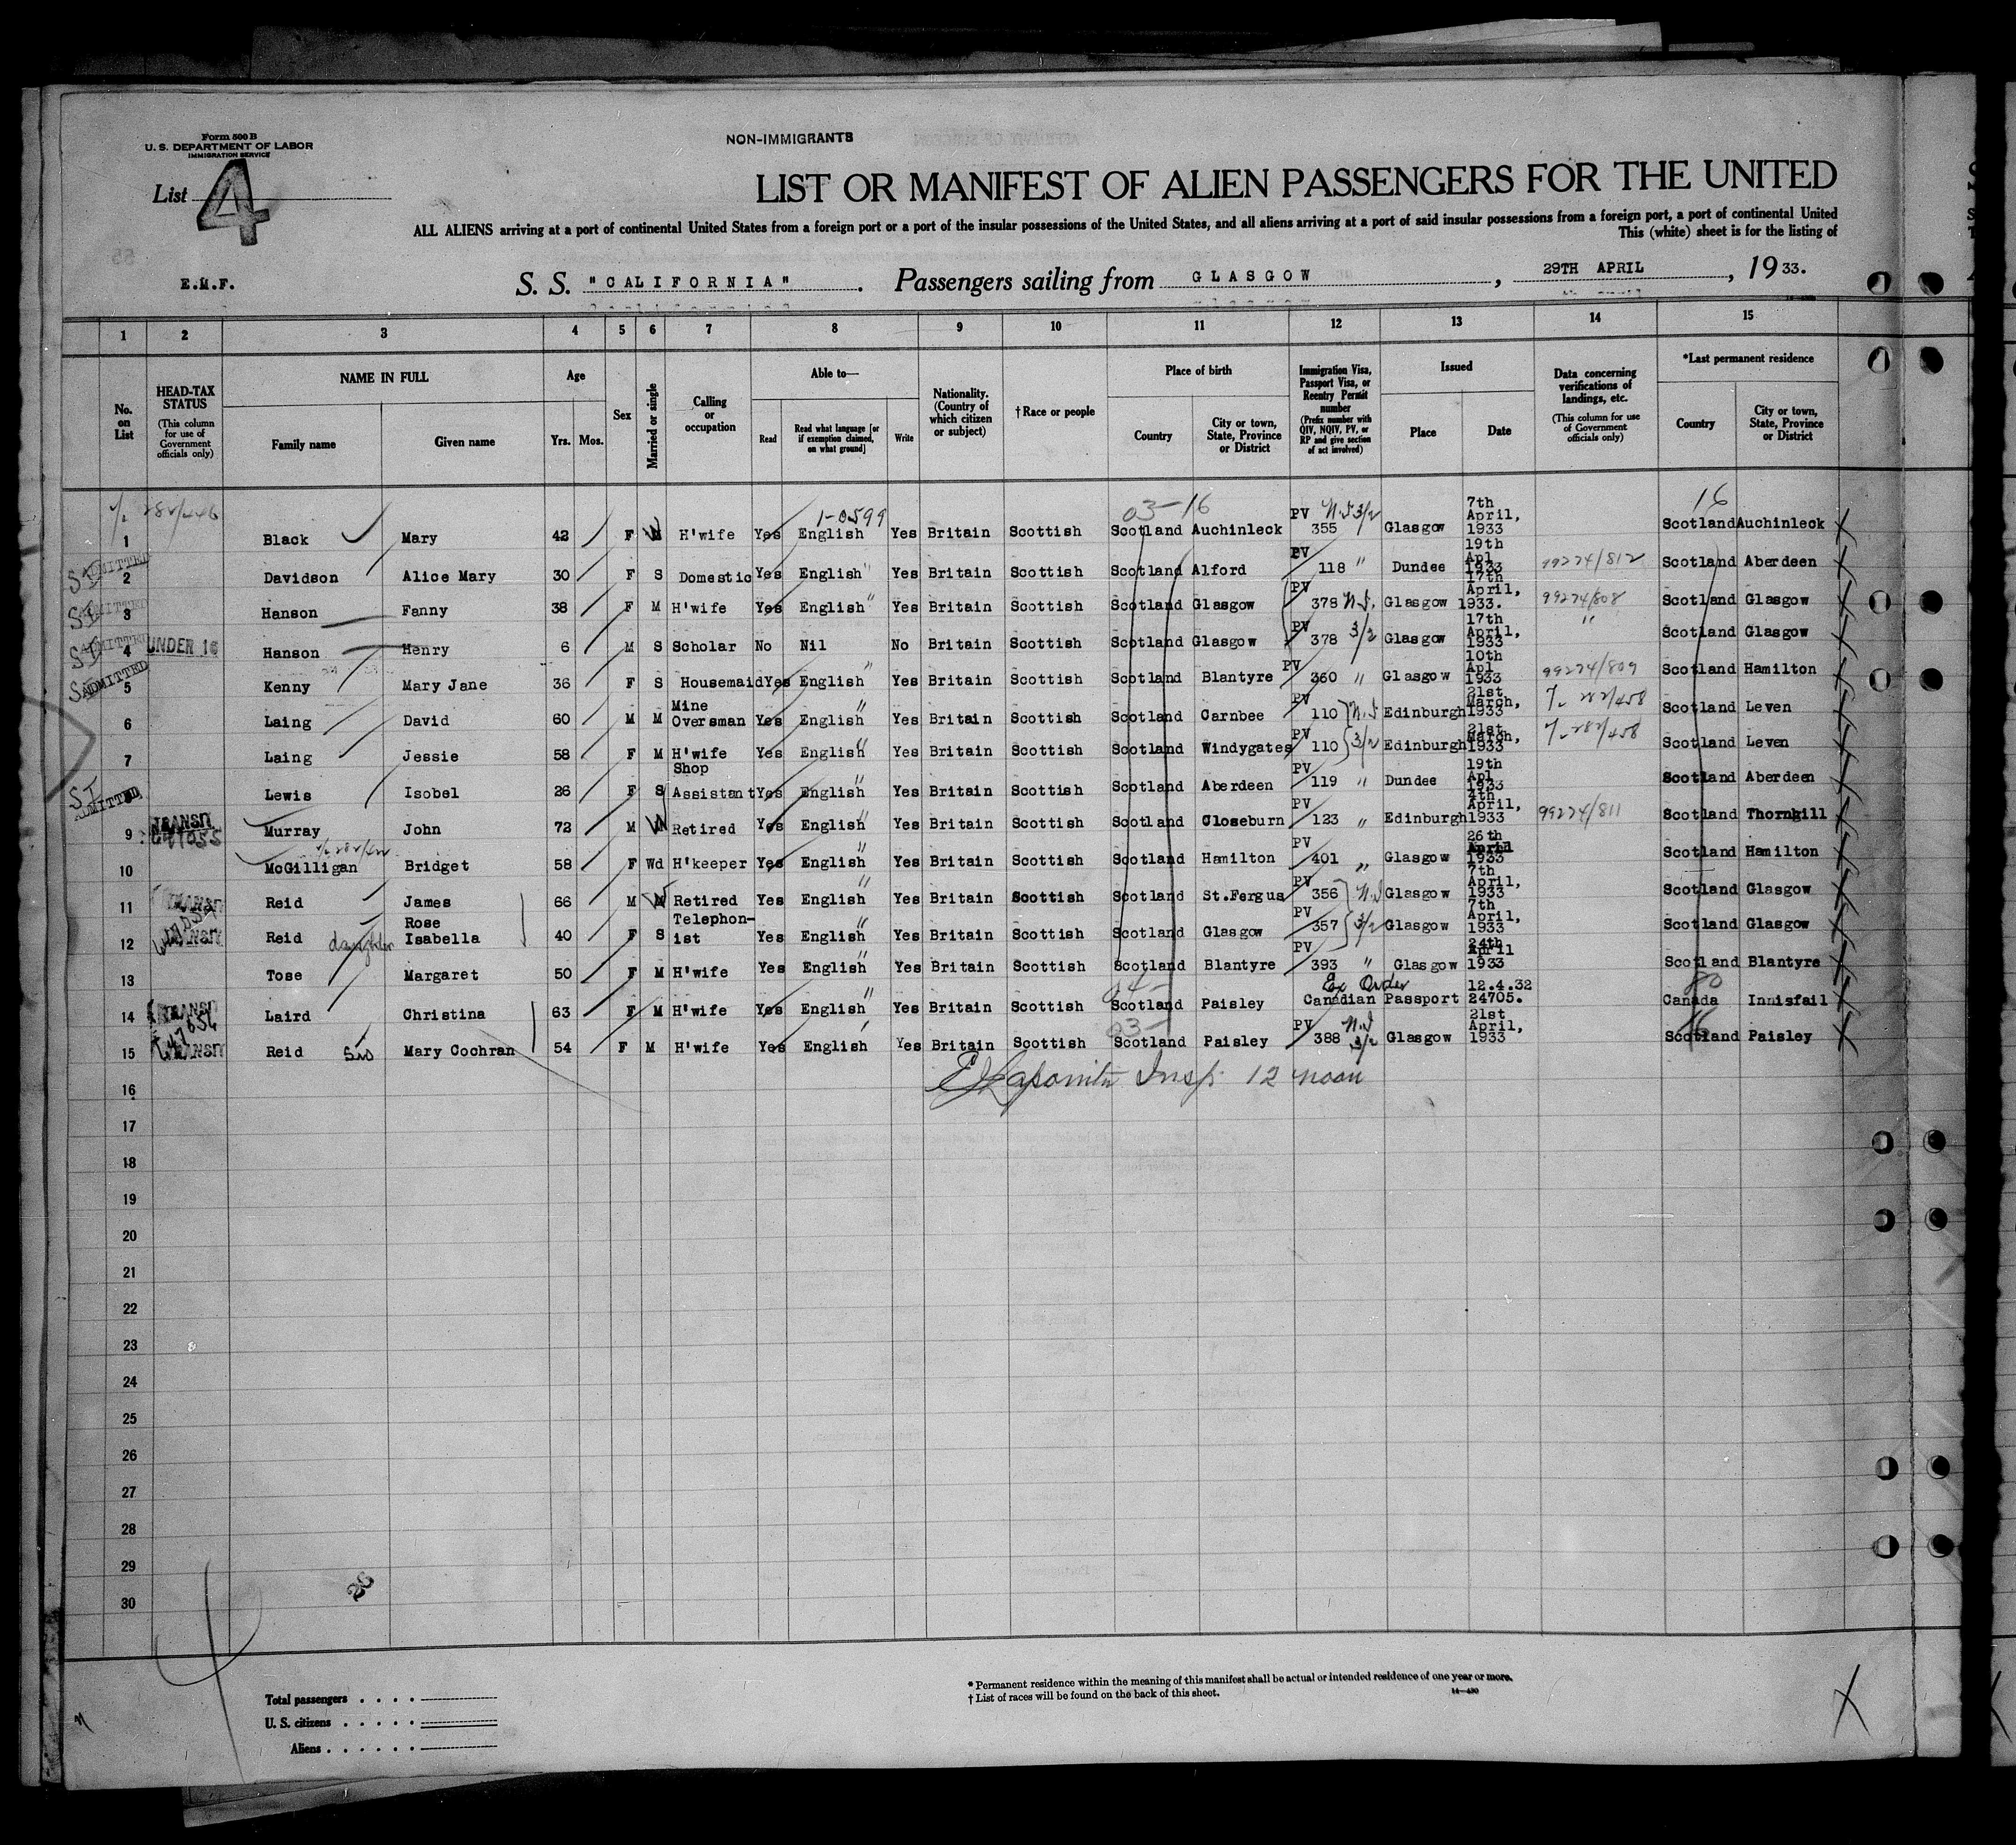 Form 500 B
U. S. DEPARTMENT OF LABOR
IMMIGRATION SERVICE
NON-IMMIGRANTS
List 4
LIST OR MANIFEST OF ALIEN PASSENGERS FOR THE UNITED
ALL ALIENS arriving at a port of continental United States from a foreign port or a port of the insular possessions of the United States, and all aliens arriving at a port of said insular possessions from a foreign port, a port of continental United
This (white) sheet is for the listing of
E.M.F.
S. S. "CALIFORNIA" . Passengers sailing from GLASGOW , 29TH APRIL , 1933.
1 2 3 4 5 6 7 8 9 10 11 12 13 14 15
No. on List
HEAD-TAX STATUS
(This column for use of Government officials only)
NAME IN FULL
Family name
Given name
Age
Yrs. Mos.
Sex
Married or single
Calling or occupation
Able to—
Read
Read what language [or if exemption claimed, on what ground]
Write
Nationality. (Country of which citizen or subject)
†Race or people
Place of birth
Country
City or town, State, Province or District
Immigration Visa, Passport Visa, or Reentry Permit number
(Prefix number with QIV, NQIV, PV, or RP and give section of act involved)
Issued
Place
Date
Data concerning verifications of landings, etc.
(This column for use of Government officials only)
*Last permanent residence
Country
City or town, State, Province or District
1-0599 03-16 16
1 Black Mary 42 F H'wife Yes English Yes Britain Scottish Scotland Auchinleck PV 355 3/2 Glasgow 7th April, 1933 Scotland Auchinleck
ADMITTED 2 Davidson Alice Mary 30 F S Domestic Yes English " Yes Britain Scottish Scotland Alford PV 118 " Dundee 19th Apl 1933 99274/812 Scotland Aberdeen
ADMITTED 3 Hanson Fanny 38 F M H'wife Yes English " Yes Britain Scottish Scotland Glasgow PV 378 Glasgow 17th April, 1933. 99274/808 Scotland Glasgow
ADMITTED 4 UNDER 16 Hanson Henry 6 M S Scholar No Nil No Britain Scottish Scotland Glasgow PV 378 3/2 Glasgow 17th April, 1933 " Scotland Glasgow
ADMITTED 5 Kenny Mary Jane 36 F S Housemaid Yes English " Yes Britain Scottish Scotland Blantyre PV 360 " Glasgow 10th Apl 1933 99274/809 Scotland Hamilton
6 Laing David 60 M M Mine Oversman Yes English " Yes Britain Scottish Scotland Carnbee PV 110 Edinburgh 21st March, 1933 Scotland Leven
7 Laing Jessie 58 F M H'wife Yes English " Yes Britain Scottish Scotland Windygates PV 110 3/2 Edinburgh 21st March, 1933 Scotland Leven
ADMITTED Lewis Isobel 26 F S Shop Assistant Yes English " Yes Britain Scottish Scotland Aberdeen PV 119 " Dundee 19th Apl 1933 Scotland Aberdeen
9 TRANSIT Murray John 72 M Retired Yes English " Yes Britain Scottish Scotland Closeburn PV 123 " Edinburgh 4th April, 1933 99274/811 Scotland Thornhill
10 McGilligan Bridget 58 F Wd H'keeper Yes English " Yes Britain Scottish Scotland Hamilton PV 401 " Glasgow 26th April 1933 Scotland Hamilton
11 TRANSIT Reid James 66 M Retired Yes English " Yes Britain Scottish Scotland St.Fergus PV 356 Glasgow 7th April, 1933 Scotland Glasgow
12 TRANSIT Reid daughter Rose Isabella 40 F S Telephon-ist Yes English " Yes Britain Scottish Scotland Glasgow PV 357 3/2 Glasgow 7th April, 1933 Scotland Glasgow
13 Tose Margaret 50 F M H'wife Yes English " Yes Britain Scottish Scotland Blantyre PV 393 " Glasgow 24th April 1933 Scotland Blantyre
14 TRANSIT Laird Christina 63 F M H'wife Yes English " Yes Britain Scottish Scotland Paisley Ex Order Canadian Passport 12.4.32 24705. Canada Innisfail
15 TRANSIT Reid Sis Mary Cochran 54 F M H'wife Yes English Yes Britain Scottish Scotland Paisley PV 388 3/2 Glasgow 21st April, 1933 Scotland Paisley
16 Insp. 12 noon
17
18
19
20
21
22
23
24
25
26
27
28
29
30
Total passengers
U. S. citizens
Aliens
* Permanent residence within the meaning of this manifest shall be actual or intended residence of one year or more.
† List of races will be found on the back of this sheet.
14—430